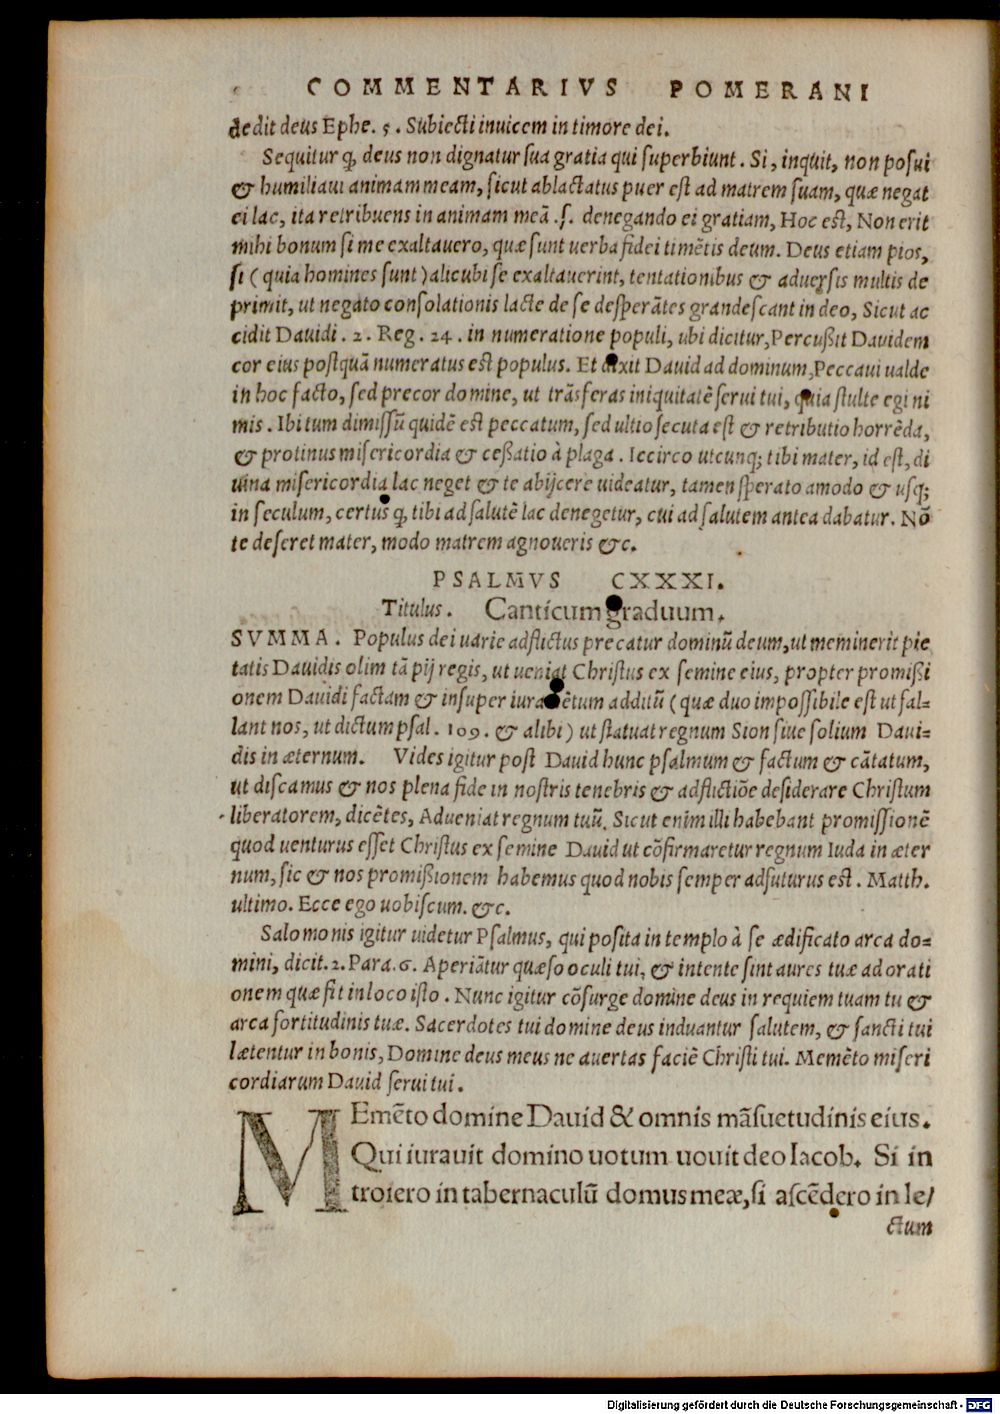 COMMENTARIVS POMERANI
dedit deus Ephe. 5. Subiecti inuicem in timore dei.
Sequitur ꝙ deus non dignatur sua gratia qui superbiunt. Si, inquit, non posui
& humiliaui animam meam, sicut ablactatus puer est ad matrem suam, quæ negat
ei lac, ita retribuens in animam meā .s. denegando ei gratiam, Hoc est, Non erit
mihi bonum si me exaltauero, quæ sunt uerba fidei timētis deum. Deus etiam pios,
si (quia homines sunt) alicubi se exaltauerint, tentationibus & aduersis multis de
primit, ut negato consolationis lacte de se desperātes grandescant in deo, Sicut ac
cidit Dauidi. 2. Reg. 24. in numeratione populi, ubi dicitur, Percußit Dauidem
cor eius postquā numeratus est populus. Et dixit Dauid ad dominum, Peccaui ualde
in hoc facto, sed precor domine, ut trāsferas iniquitatē serui tui, quia stulte egi ni
mis. Ibi tum dimissū quidē est peccatum, sed ultio secuta est & retributio horrēda,
& protinus misericordia & ceßatio à plaga. Iccirco utcunq; tibi mater, id est, di
uina misericordia lac neget & te abijcere uideatur, tamen sperato amodo & usq;
in seculum, certus ꝙ tibi ad salutē lac denegetur, cui ad salutem antea dabatur. Nō
te deseret mater, modo matrem agnoueris &c.
PSALMVS CXXXI.
Titulus. Canticum graduum.
SVMMA. Populus dei uarie adflictus precatur dominū deum, ut meminerit pie
tatis Dauidis olim tā pij regis, ut ueniat Christus ex semine eius, propter promißi
onem Dauidi factam & insuper iuramētum additū (quæ duo impossibile est ut fal-
lant nos, ut dictum psal. 109. & alibi) ut statuat regnum Sion siue solium Daui-
dis in æternum. Vides igitur post Dauid hunc psalmum & factum & cātatum,
ut discamus & nos plena fide in nostris tenebris & adflictiōe desiderare Christum
liberatorem, dicētes, Adueniat regnum tuū. Sicut enim illi habebant promissionē
quod uenturus esset Christus ex semine Dauid ut cōfirmaretur regnum Iuda in æter
num, sic & nos promißionem habemus quod nobis semper adfuturus est. Matth.
ultimo. Ecce ego uobiscum. &c.
Salomonis igitur uidetur Psalmus, qui posita in templo à se ædificato arca do-
mini, dicit. 2. Para. 6. Aperiātur quæso oculi tui, & intente sint aures tuæ ad orati
onem quæ fit in loco isto. Nunc igitur cōsurge domine deus in requiem tuam tu &
arca fortitudinis tuæ. Sacerdotes tui domine deus induantur salutem, & sancti tui
lætentur in bonis, Domine deus meus ne auertas faciē Christi tui. Memēto miseri
cordiarum Dauid serui tui.
MEmēto domine Dauid & omnis māsuetudinis eius.
Qui iurauit domino uotum uouit deo Iacob. Si in
troiero in tabernaculū domus meæ, si ascēdero in le/
ctum
Digitalisierung gefördert durch die Deutsche Forschungsgemeinschaft - DFG